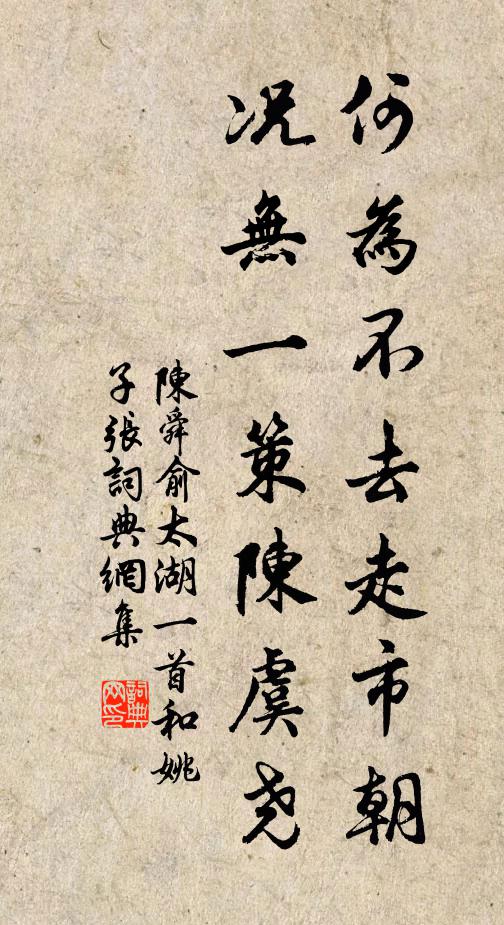 何為不去走市朝
况無一策陳虞尧
陳舜俞太湖一首和姚
子張詞典網集
詞典
网印